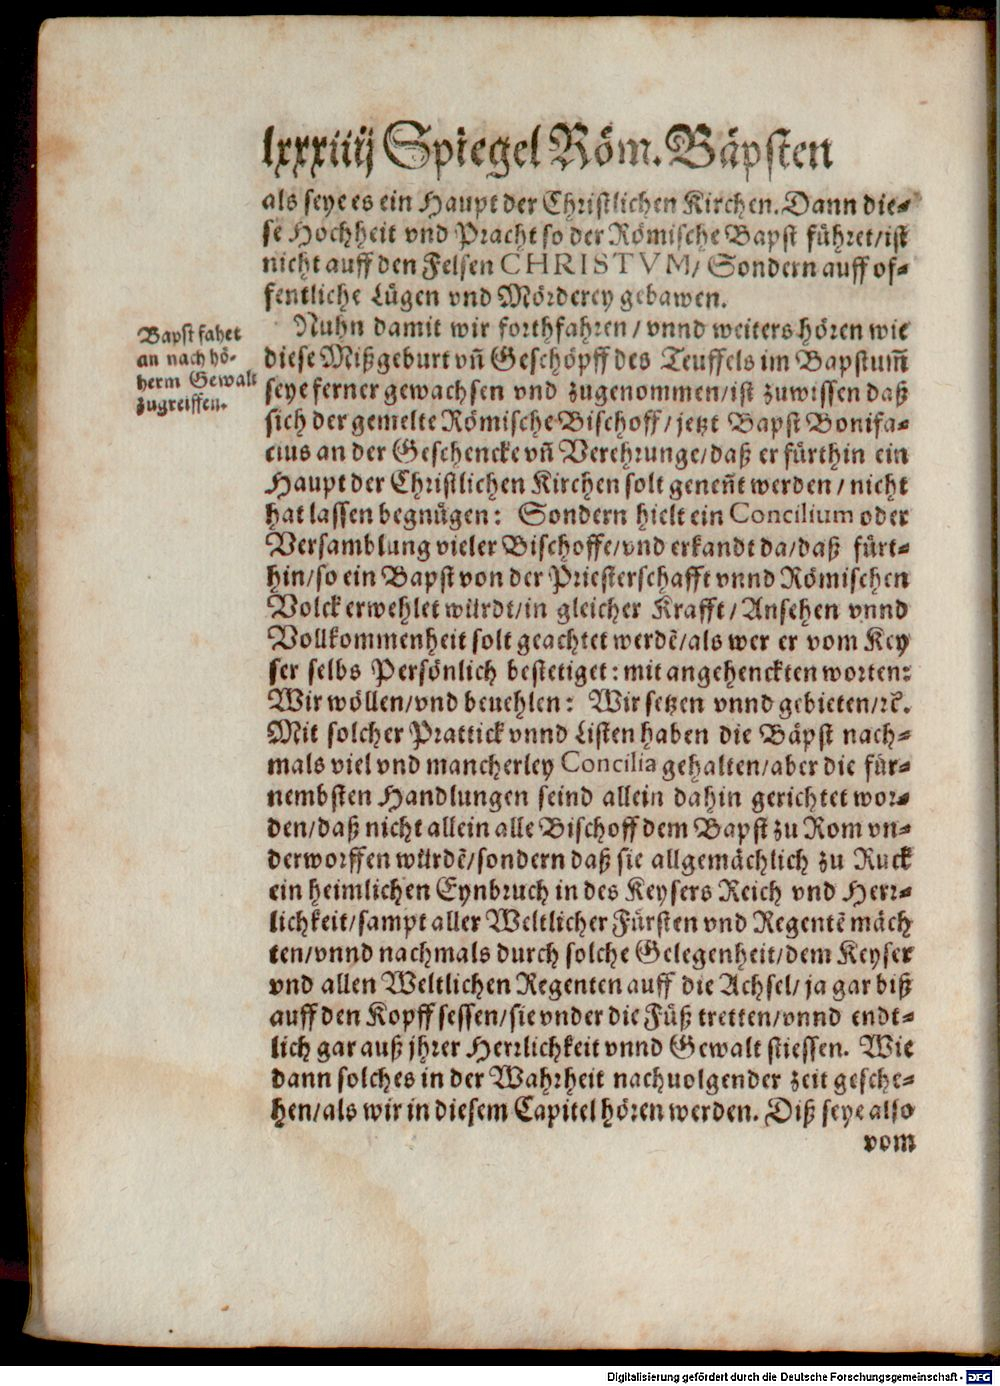 lxxxiiij Spiegel Röm. Bäpsten
als seye es ein Haupt der Christlichen Kirchen. Dann die-
se Hochheit vnd Pracht so der Römische Bapst führet/ist
nicht auff den Felsen CHRISTVM/ Sondern auff of-
fentliche Lügen vnd Mörderey gebawen.
Bapst fahet
an nach hö-
herm Gewalt
zugreiffen.
Nuhn damit wir forthfahren/ vnnd weiters hören wie
diese Mißgeburt vñ Geschöpff des Teuffels im Bapstum̃
seye ferner gewachsen vnd zugenommen/ist zuwissen daß
sich der gemelte Römische Bischoff/ jetzt Bapst Bonifa-
cius an der Geschencke vñ Verehrunge/daß er fürthin ein
Haupt der Christlichen Kirchen solt geneñt werden/ nicht
hat lassen begnügen: Sondern hielt ein Concilium oder
Versamblung vieler Bischoffe/vnd erkandt da/daß fürt-
hin/so ein Bapst von der Priesterschafft vnnd Römischen
Volck erwehlet würdt/in gleicher Krafft/ Ansehen vnnd
Vollkommenheit solt geachtet werdẽ/als wer er vom Key
ser selbs Persönlich bestetiget: mit angehenckten worten:
Wir wöllen/vnd beuehlen: Wir setzen vnnd gebieten/ꝛc.
Mit solcher Prattick vnnd Listen haben die Bäpst nach-
mals viel vnd mancherley Concilia gehalten/aber die für-
nembsten Handlungen seind allein dahin gerichtet wor-
den/daß nicht allein alle Bischoff dem Bapst zu Rom vn-
derworffen würdẽ/sondern daß sie allgemächlich zu Ruck
ein heimlichen Eynbruch in des Keysers Reich vnd Herr-
lichkeit/sampt aller Weltlicher Fürsten vnd Regentẽ mäch
ten/vnnd nachmals durch solche Gelegenheit/dem Keyser
vnd allen Weltlichen Regenten auff die Achsel/ ja gar biß
auff den Kopff sessen/sie vnder die Füß tretten/vnnd endt-
lich gar auß jhrer Herrlichkeit vnnd Gewalt stiessen. Wie
dann solches in der Wahrheit nachuolgender zeit gesche-
hen/als wir in diesem Capitel hören werden. Diß seye also
vom
Digitalisierung gefördert durch die Deutsche Forschungsgemeinschaft - DFG